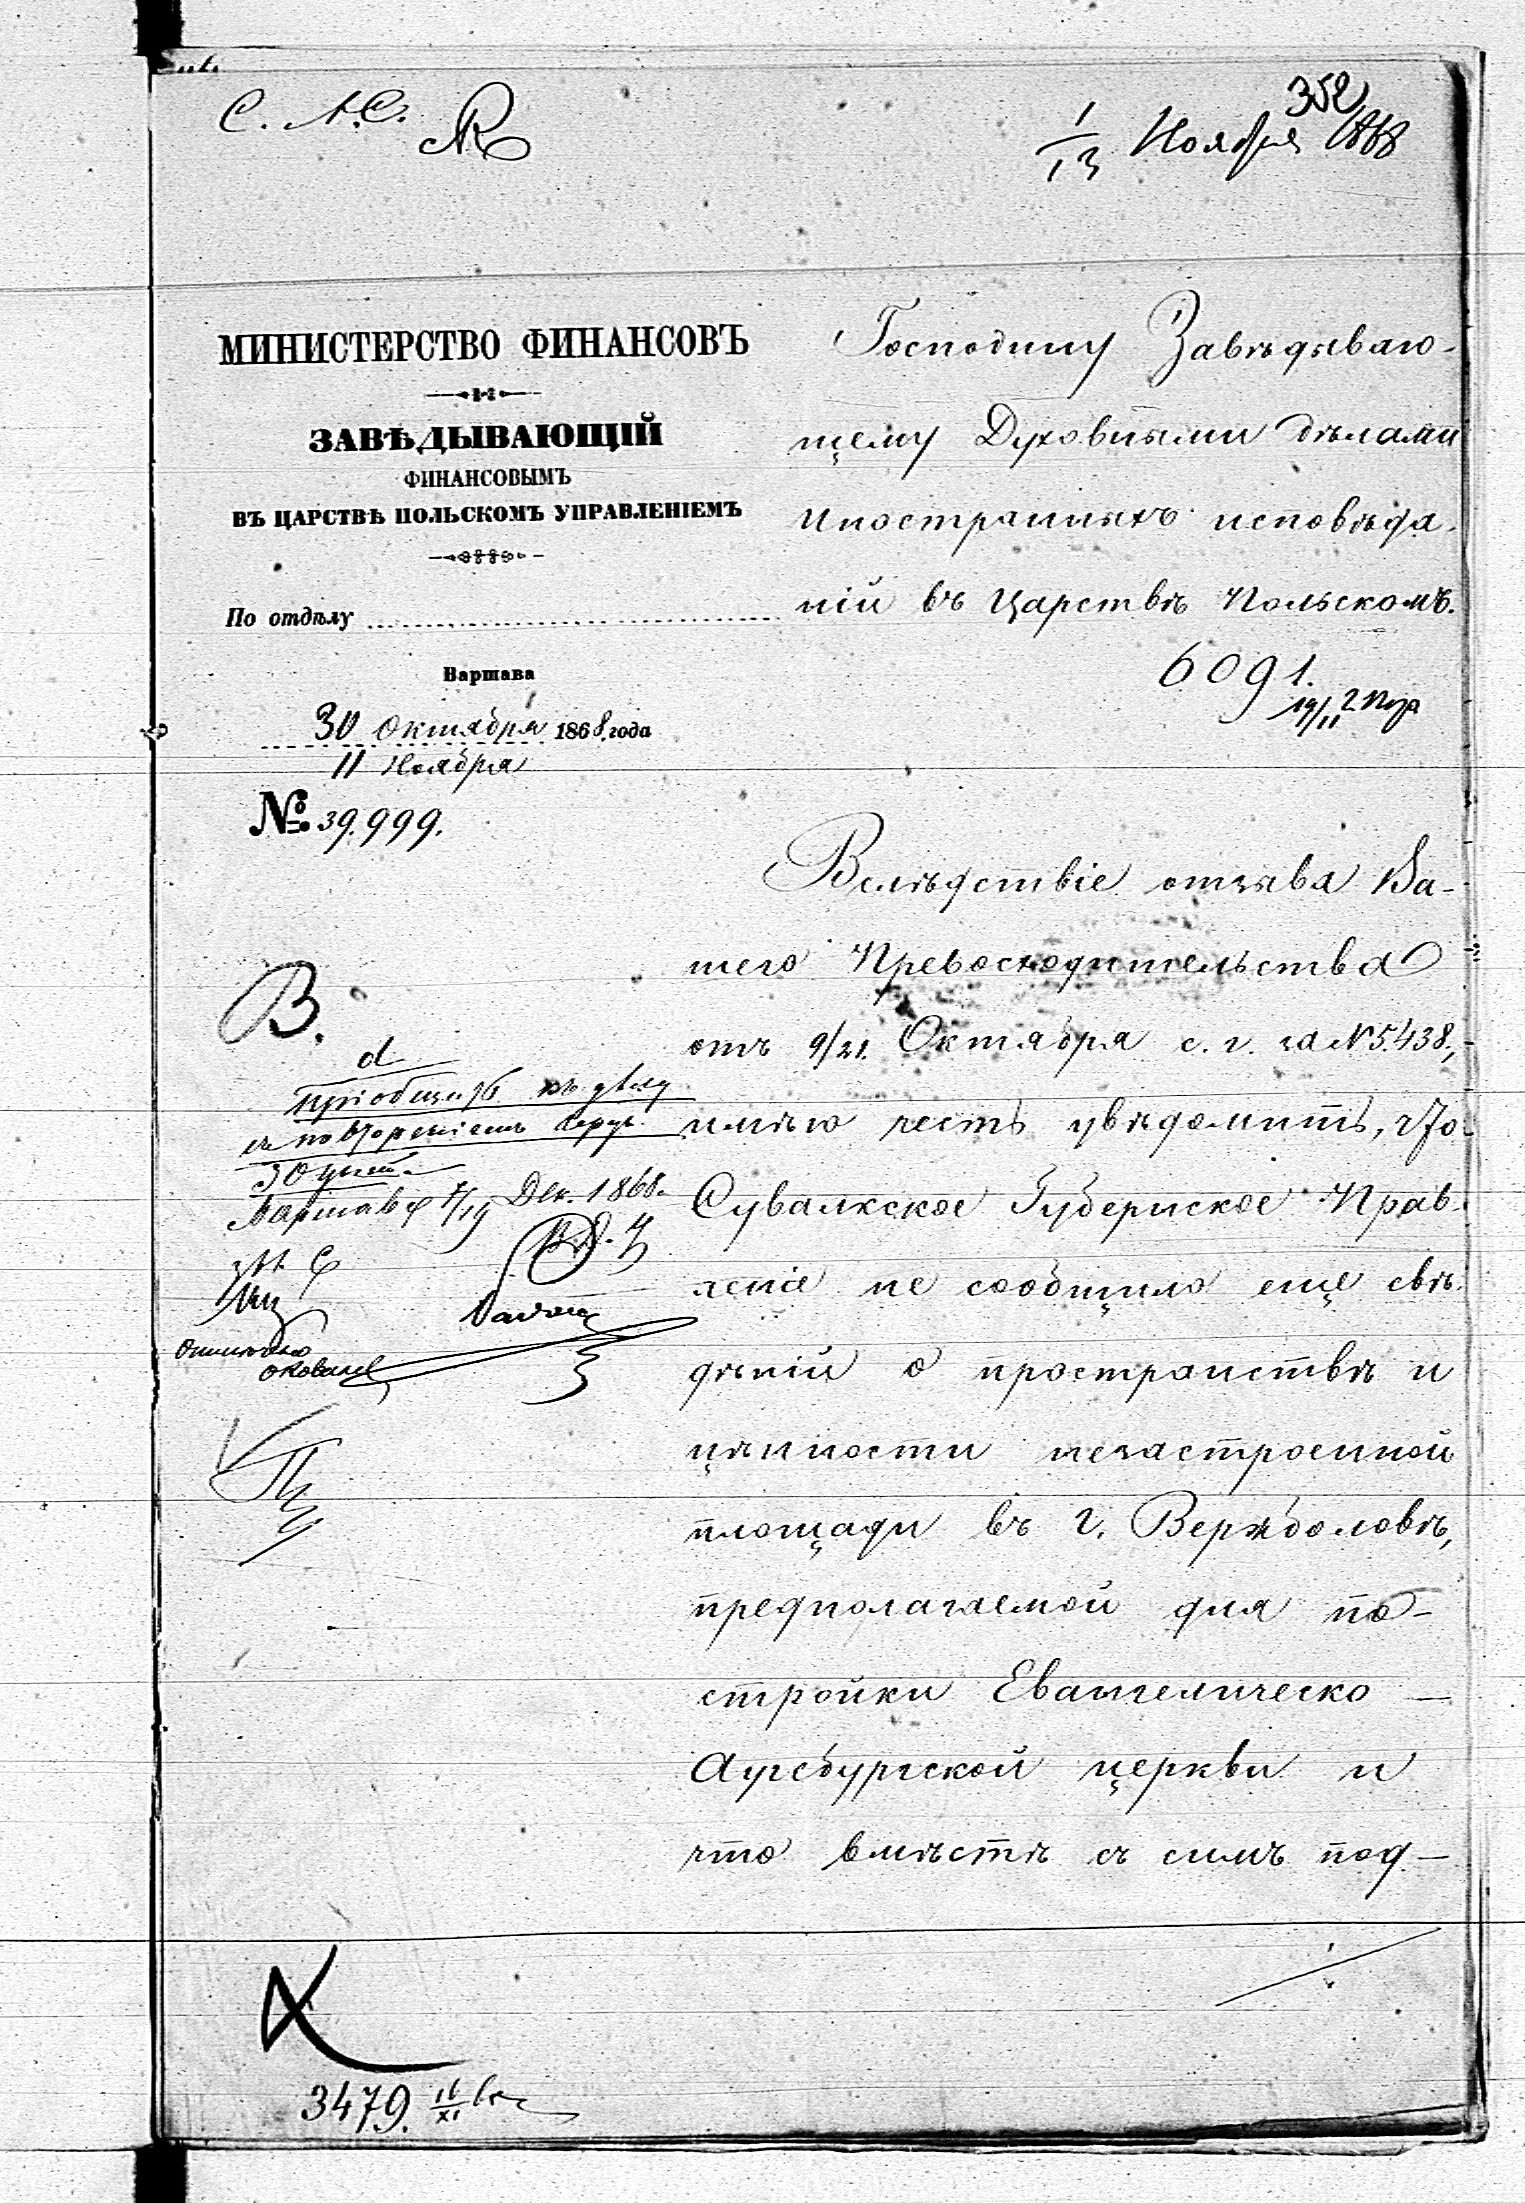 С. А. С.
352
1/13 Ноября 1868
МИНИСТЕРСТВО ФИНАНСОВЪ
ЗАВѢДЫВАЮЩІЙ
ФИНАНСОВЫМЪ
ВЪ ЦАРСТВѢ ПОЛЬСКОМЪ УПРАВЛЕНІЕМЪ
По отдѣлу
Варшава
30 Октября 1868 года
11 Ноября
№ 39.999.
Господину Завѣдываю-
щему Духовными дѣлами
иностранныхъ исповѣда-
ній въ Царствѣ Польскомъ.
6091.
19/11
Вслѣдствіе отзыва Ва-
шего Превосходительства
отъ 9/21. Октября с. г. за № 5.438.,
имѣю честь увѣдомить, что
Сувалкское Губернское Прав-
леніе не сообщило еще свѣ-
дѣній о пространствѣ и
цѣнности незастроенной
площади въ г. Вержболовѣ,
предполагаемой для по-
стройки Евангелическо —
Аугсбургской церкви и
что вмѣстѣ съ симъ под-
В.
d
Пріобщить къ дѣлу
съ повтореніемъ
Варшава 7/19 Дек. 1868.
3479.